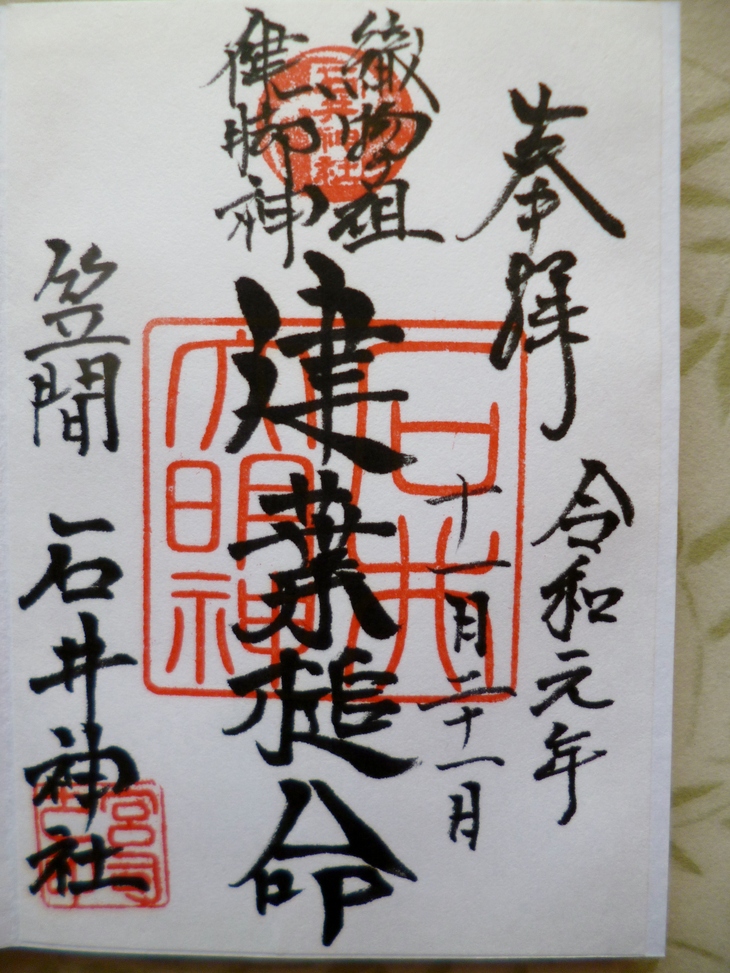 奉拝
令和元年
十一月二十一月
織物祖
健脚神
建葉槌命
笠間 石井神社
石井神社
石井
大明神